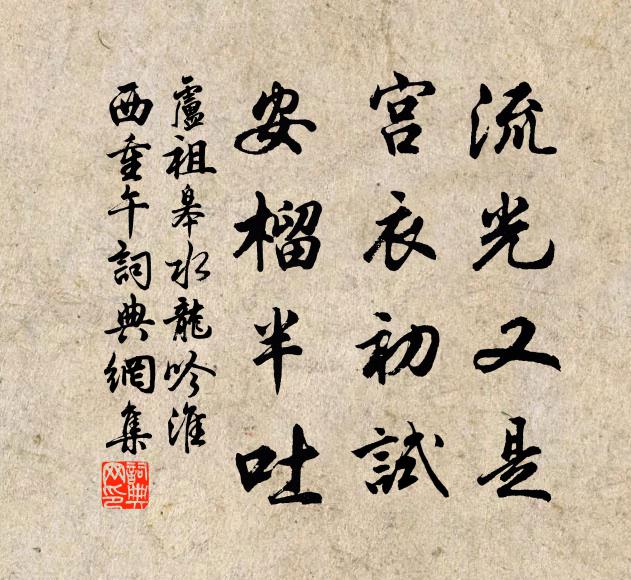 流光又是
宫衣初試
安榴半吐
盧祖皋水龍吟淮
西重午詞典網集
詞典网印